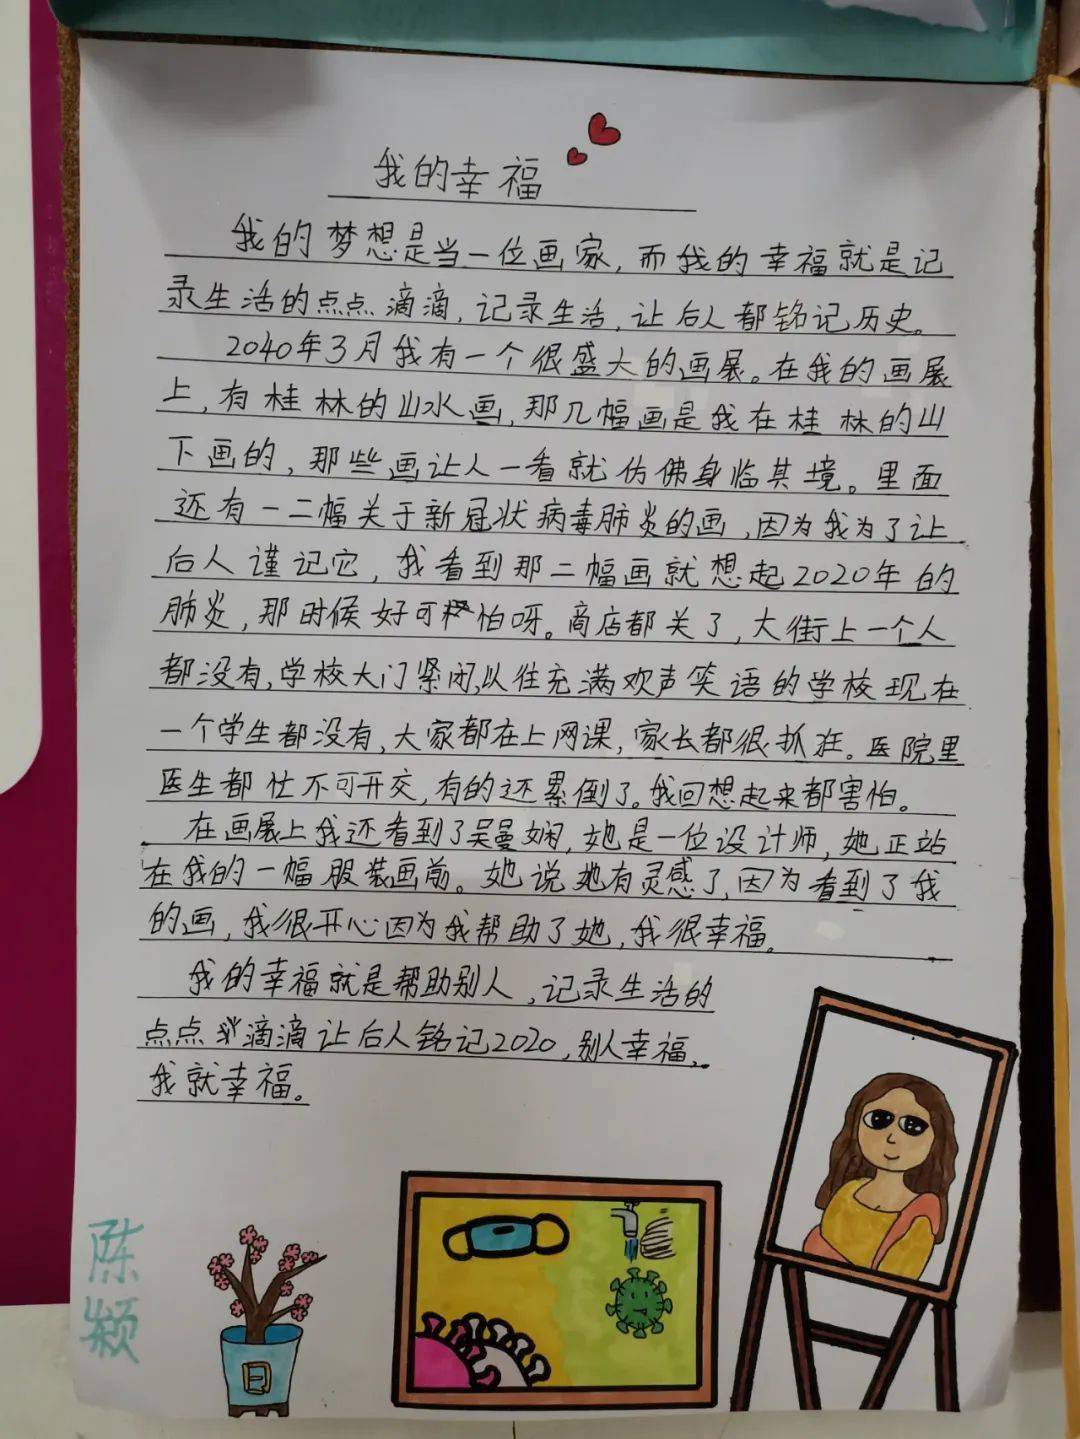 我的幸福
我的梦想是当一位画家，而我的幸福就是记
录生活的点点滴滴，记录生活，让后人都铭记历史。
2040年3月我有一个很盛大的画展。在我的画展
上，有桂林的山水画，那几幅画是我在桂林的山
下画的，那些画让人一看就仿佛身临其境。里面
还有一二幅关于新冠状病毒肺炎的画，因为我为了让
后人谨记它，我看到那二幅画就想起2020年的
肺炎，那时候好可怕呀。商店都关了，大街上一个人
都没有，学校大门紧闭，以往充满欢声笑语的学校现在
一个学生都没有，大家都在上网课，家长都很抓狂。医院里
医生都忙不可开交，有的还累倒了。我回想起来都害怕。
在画展上我还看到了吴曼娴，她是一位设计师，她正站
在我的一幅服装画前。她说她有灵感了，因为看到了我
的画，我很开心因为我帮助了她，我很幸福。
我的幸福就是帮助别人，记录生活的
点点滴滴让后人铭记2020，别人幸福，
我就幸福。
陈
颖